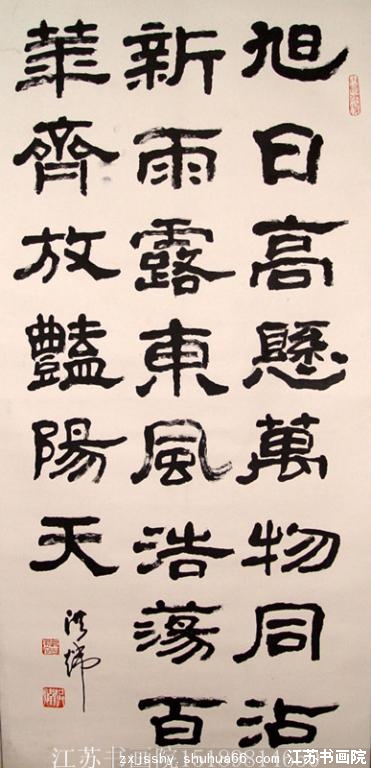 旭日高懸萬物同沾
新雨露東風浩蕩百
華齊放豔陽天
江苏书画院
zxjsshy.shuhua66.com 江苏书画院